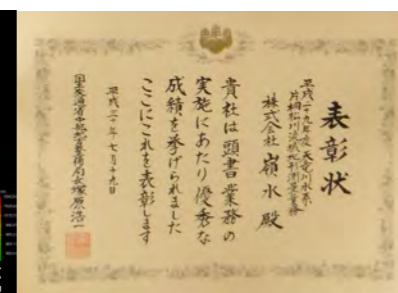 表彰状
平成二十九年度 天竜川水系
片桐松川流域地形測量業務
株式会社 嶺水 殿
貴社は頭書業務の
実施にあたり優秀な
成績を挙げられました
ここにこれを表彰します
平成三十年七月十九日
国土交通省中部地方整備局長塚原浩一